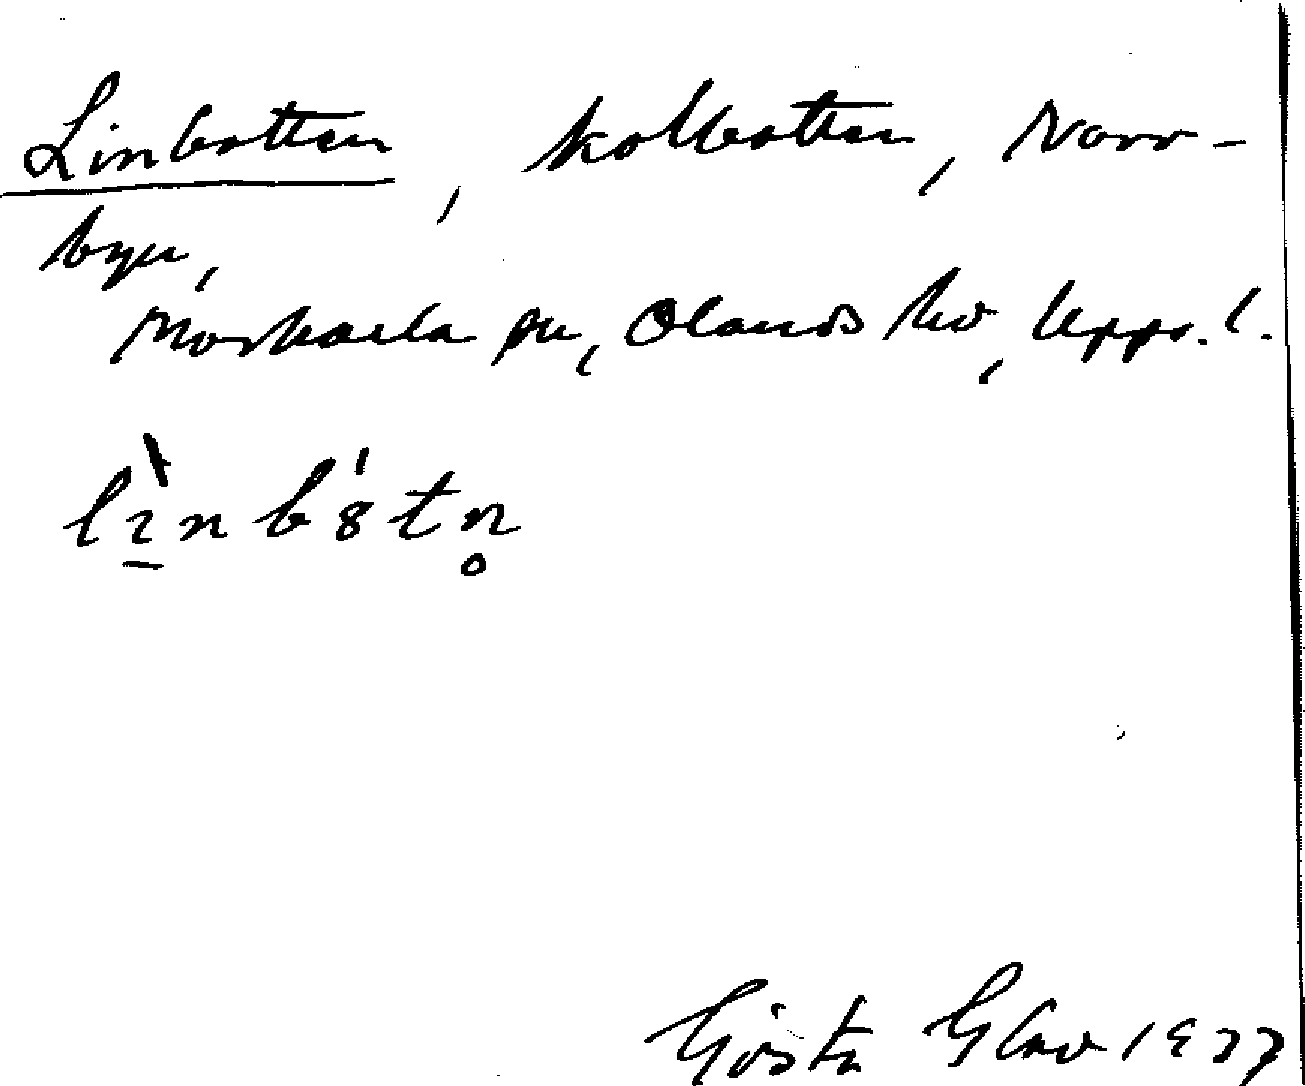 Linbotten, kolbotten, Norr-
byn,
Morkarla sn, Olands hd, Upps. l.
lìnb8́tn̥
Gösta Glav 1977